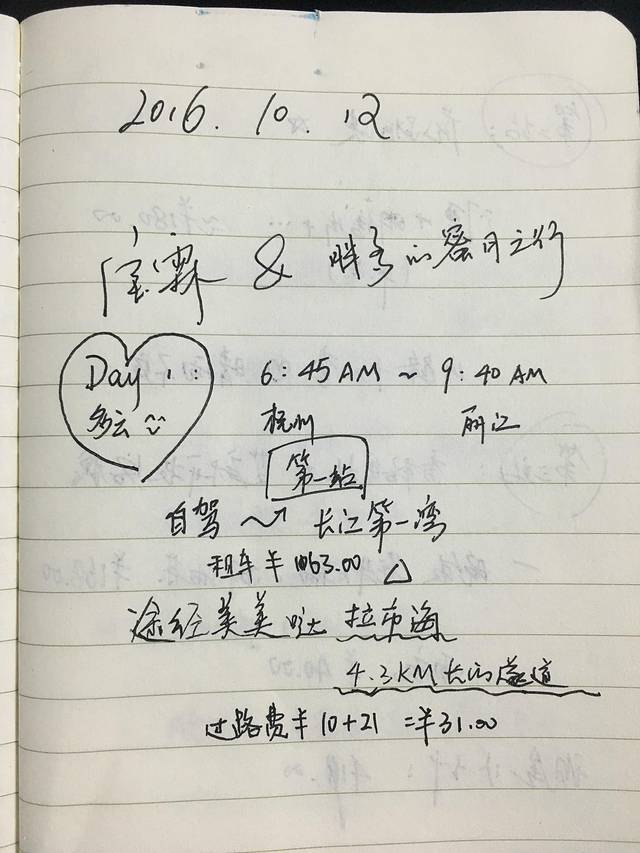 2016. 10. 12
宝霖 & 胖子的蜜月之行
Day 1:
多云
6:45 AM ~ 9:40 AM
杭州 丽江
第一站
自驾 → 长江第一湾
租车 ¥ 1063.00
途经美美哒 拉市海
4.3KM长的隧道
过路费 ¥ 10+21 = ¥31.00